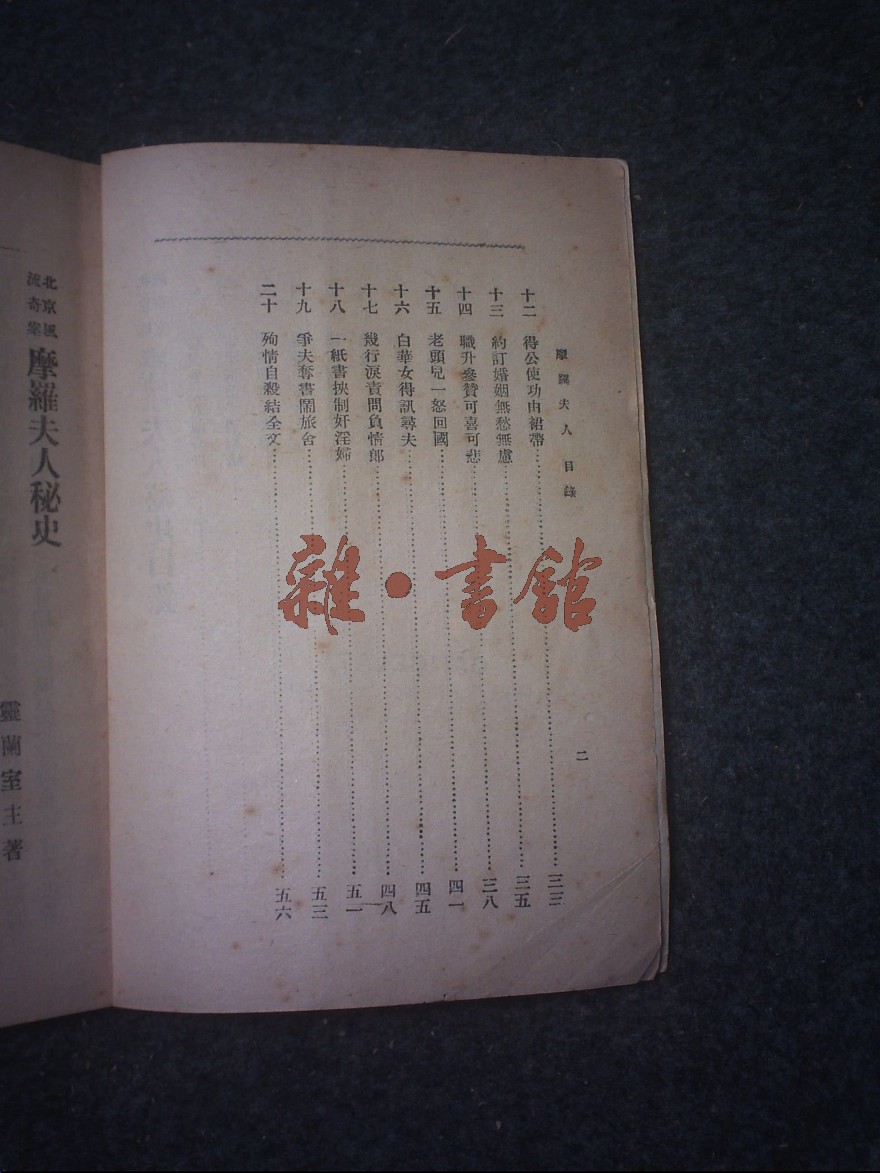 摩羅夫人 目錄
二
十二 得公使功由裙帶……三三
十三 約訂婚姻無愁無慮……三五
十四 職升參贊可喜可悲……三八
十五 老頭兒一怒回國……四一
十六 白華女得訊尋夫……四五
十七 幾行淚責問負情郎……四八
十八 一紙書挾制奸淫婦……五一
十九 爭夫奪書鬧旅舍……五三
二十 殉情自殺結全文……五六
雜·書館
北京風流奇案
摩羅夫人秘史
靈蘭室主著